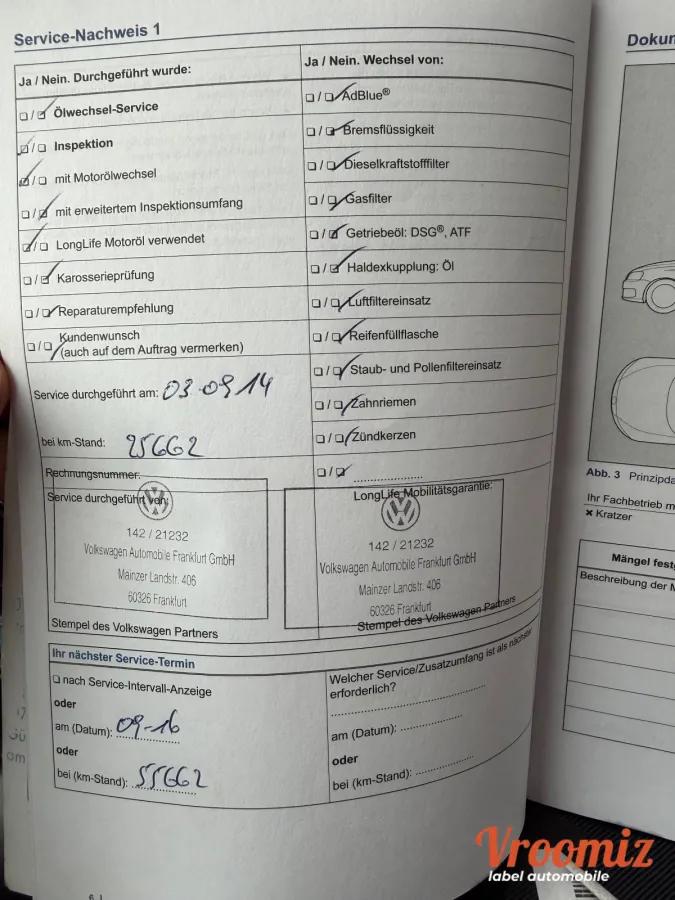 Service-Nachweis 1
Ja / Nein. Durchgeführt wurde:
☐/☑ Ölwechsel-Service
☑/☐ Inspektion
☑/☐ mit Motorölwechsel
☐/☑ mit erweitertem Inspektionsumfang
☑/☐ LongLife Motoröl verwendet
☐/☑ Karosserieprüfung
☐/☑ Reparaturempfehlung
☐/☑ Kundenwunsch
(auch auf dem Auftrag vermerken)
Service durchgeführt am: 03-09 14
bei km-Stand: 25662
Rechnungsnummer:
Service durchgeführt von:
142 / 21232
Volkswagen Automobile Frankfurt GmbH
Mainzer Landstr. 406
60326 Frankfurt
Stempel des Volkswagen Partners
Ja / Nein. Wechsel von:
☐/☑ AdBlue®
☐/☑ Bremsflüssigkeit
☐/☑ Dieselkraftstofffilter
☐/☑ Gasfilter
☐/☑ Getriebeöl: DSG®, ATF
☐/☑ Haldexkupplung: Öl
☐/☑ Luftfiltereinsatz
☐/☑ Reifenfüllflasche
☐/☑ Staub- und Pollenfiltereinsatz
☐/☑ Zahnriemen
☐/☑ Zündkerzen
☐/☑ ....................
LongLife Mobilitätsgarantie:
142 / 21232
Volkswagen Automobile Frankfurt GmbH
Mainzer Landstr. 406
60326 Frankfurt
Stempel des Volkswagen Partners
Ihr nächster Service-Termin
☐ nach Service-Intervall-Anzeige
oder
am (Datum): 09-16
oder
bei (km-Stand): 55662
Welcher Service/Zusatzumfang ist als nächster
erforderlich?
am (Datum): ................
oder
bei (km-Stand): ................
6
Abb. 3 Prinzipda
Ihr Fachbetrieb m
× Kratzer
Mängel fest
Beschreibung der M
Vroomiz
label automobile